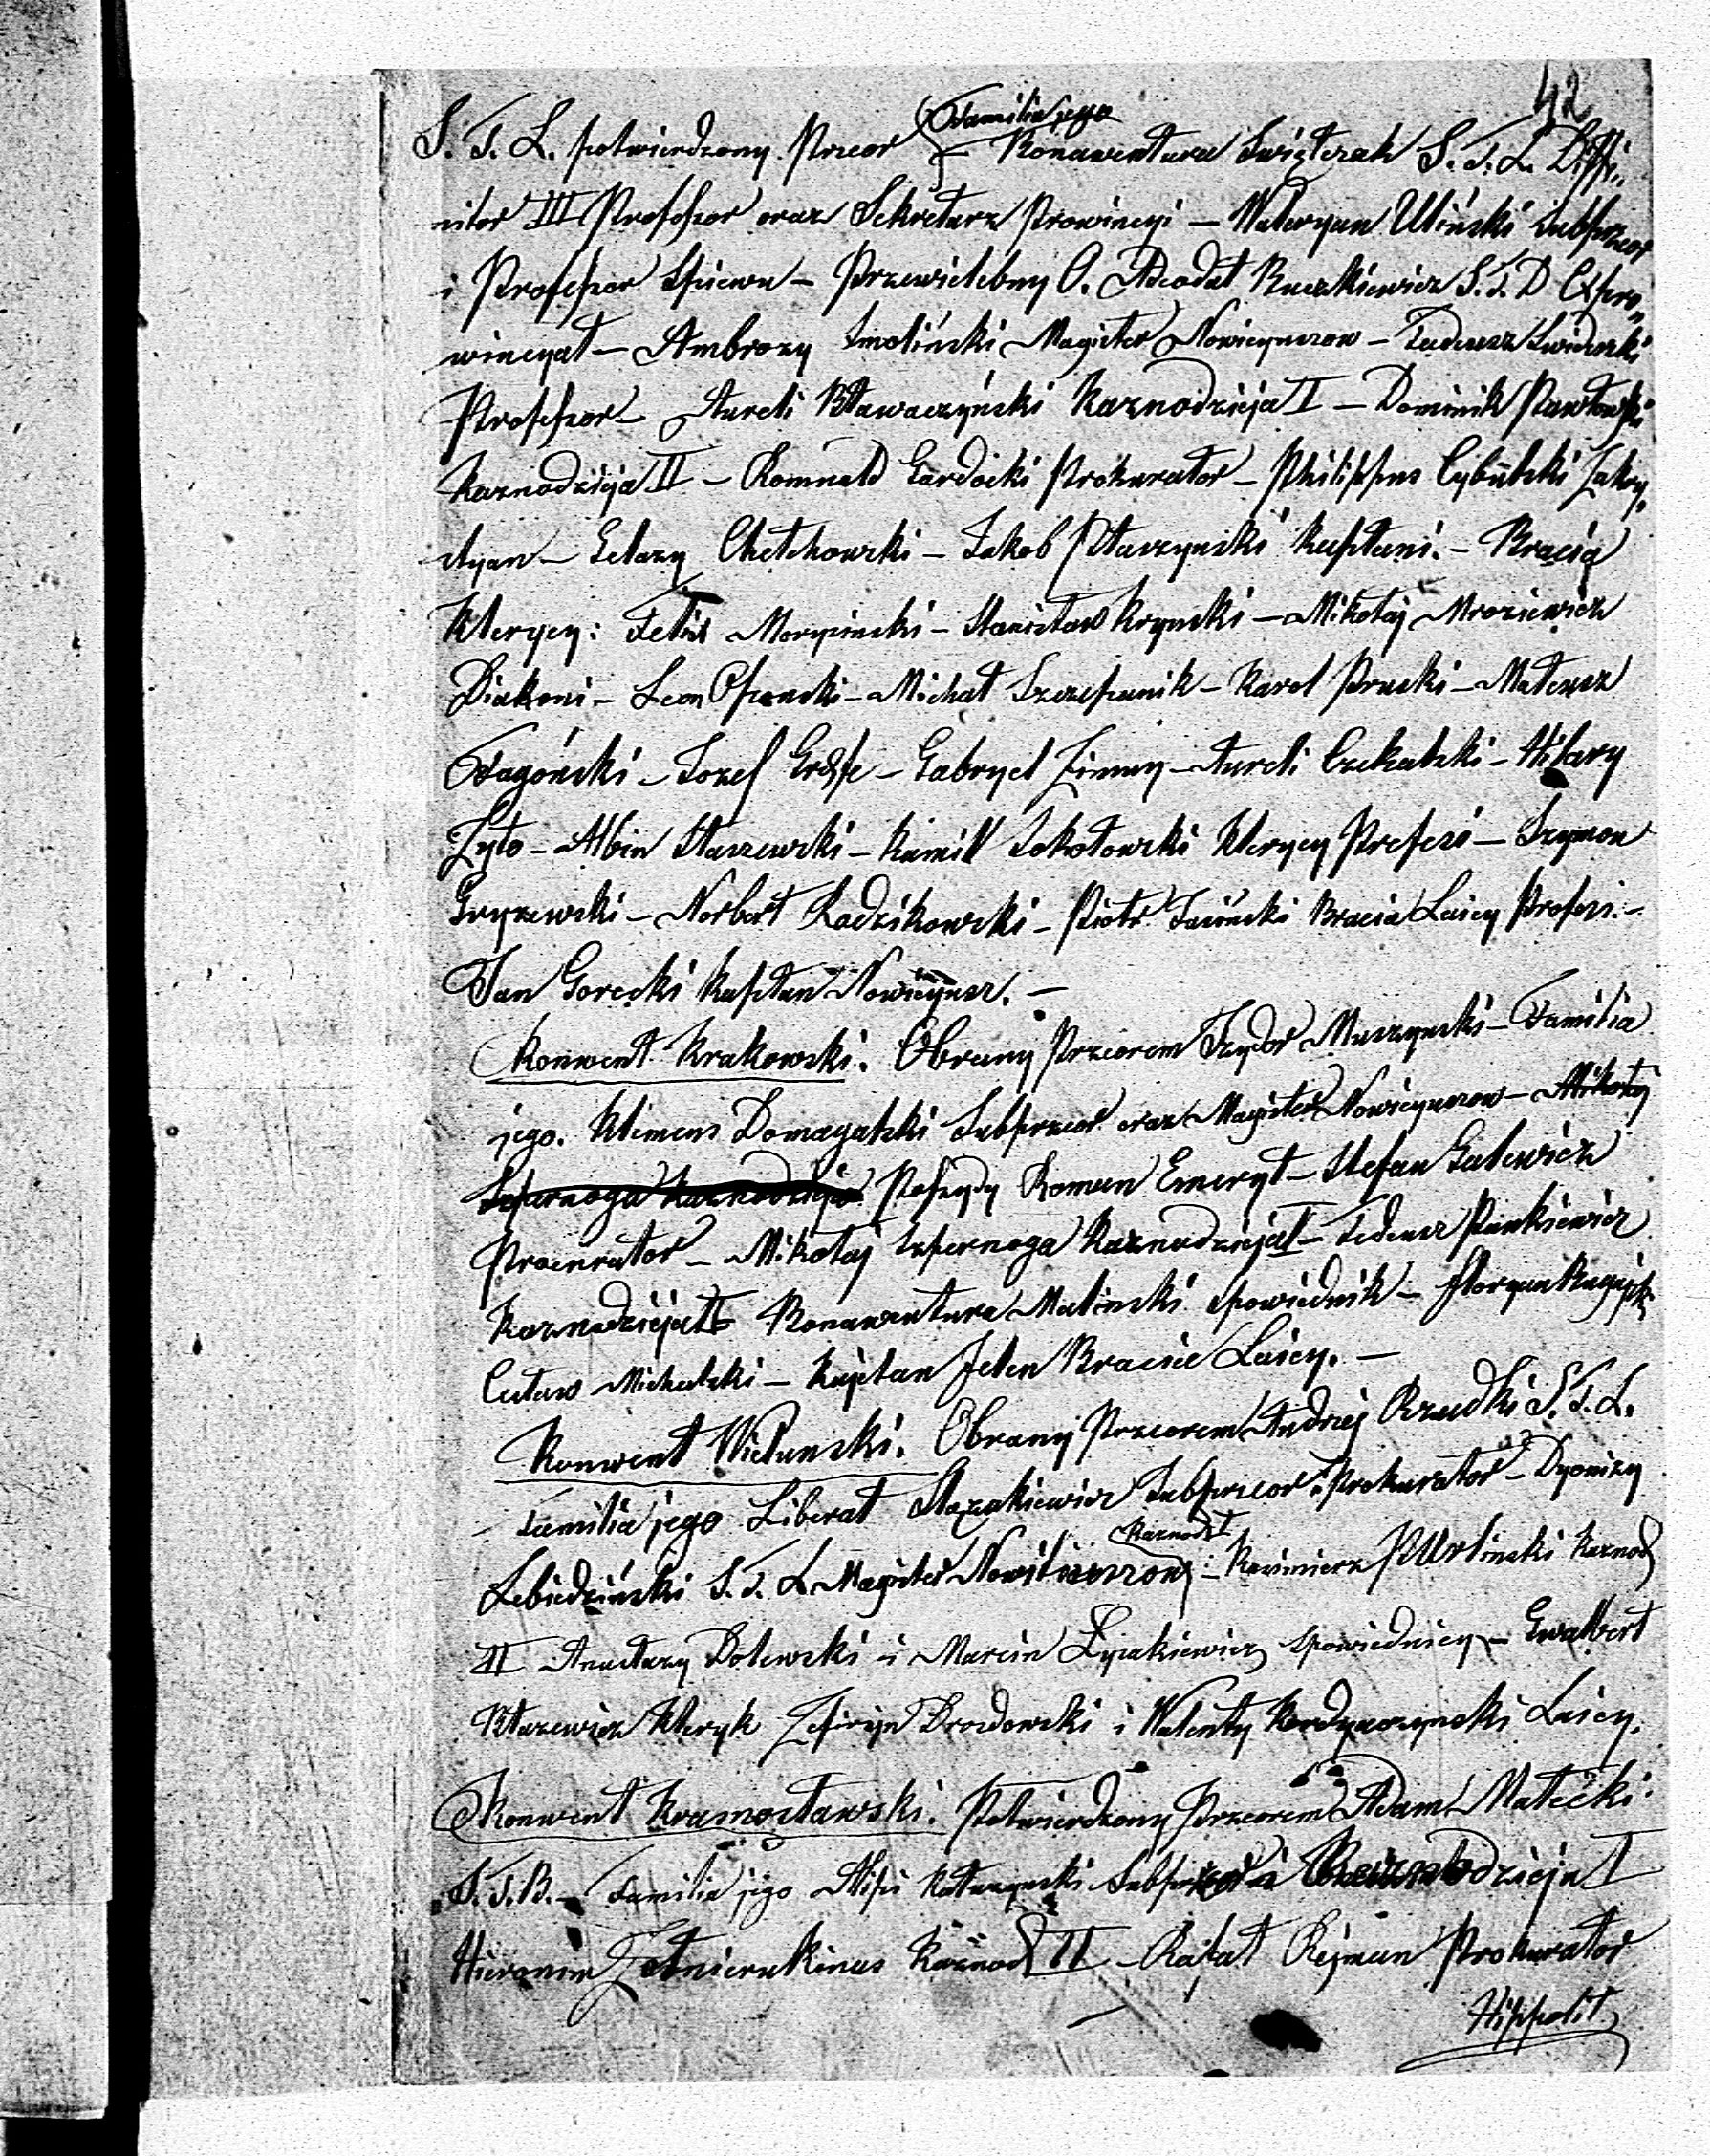 42
S. T. L. potwierdzony Przeor Familia jego – Bonawentura Swiątczak S. T. L. Diffi„
nitor III Professor oraz Sekretarz Prowincyi – Waleryan Uliński Subprzeor
i Professor Spiewu – Przewielebny O. Adeodat Ruszkiewicz S. T. D Expro„
wincyał – Ambrozy Smoliński Magister Nowicyuszow – Tadeusz Swiderski
Professor – Aureli Bławaczyński Kaznodzieja I – Dominik Pawłowski
Kaznodzieja II – Romuald Gardocki Prokurator – Philippus Cybulski Zakry„
styan – Gelazy Chełchowski – Jakob Ptaszynski Kapłani. – Bracia
Klerycy: Felix Morycinski – Stanisław Krynski – Mikołaj Mroziewicz
Diakoni – Leon – Michał Szczepanik – Karol Pruski – Mateusz
Fagóński – Jozef – Gabryel Zimny – Aureli Czekalski – Hilary
Zyto – Albin Staszewski – Kamill Sokołowski Klerycy Profesi – Szymon
Gryzewski – Norbert Radzikowski – Piotr Jasiński Bracia Laicy Profesi. –
Jan Gorecki Kapłan Nowicyusz. –
Konwent Krakowski. Obrany Przeorem Izydor Muszynski – Familia
jego. Klemens Domagalski Subprzeor oraz Magister Nowicyuszow – Mikołaj
Szpernoga Kaznodzieja Possydy Roman Emeryt – Stefan Galewicz
Procurator – Mikołaj Szpernoga Kaznodzieja I – Tadeusz Pankiewicz
Kaznodzieja II Bonawentura Malinski Spowiednik – Floryan
Michalski – Kajetan Jelen Bracia Laicy. –
Konwent Wielunski. Obrany Przeorem Andrzej Rzudki S. T. L.
Familia jego Liberat Subprzeor i Prokurator – Dyonizy
Lebiedziński S. T. L Magister Kaznod I – Kazimierz Kaznod
II Anastazy Dolewski i Marcin Łysakiewicz Spowiednicy – Gwalbert
Błazewicz Kleryk Zefiryn Drozdowski i Walenty Laicy.
Konwent Krasnostawski. Potwierdzony Przeorem Adam Małecki
S. T. B. – Familia jego Alipi Kałuzynski Subprzeor i Kaznodzieja I
Hieronim Kaznod II – Rafał Rejman Prokurator
Hippolit